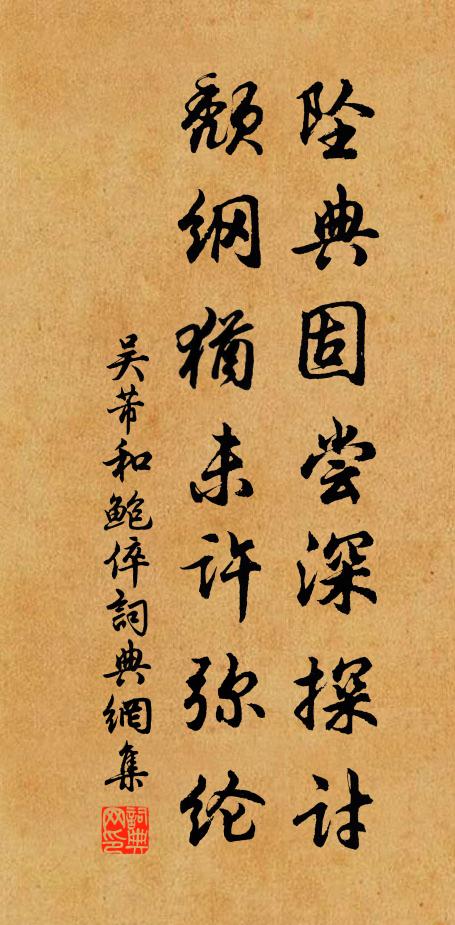 坠典固尝深探讨
颓纲犹未许弥纶
吴芾和鲍倅詞典網集
詞典网印